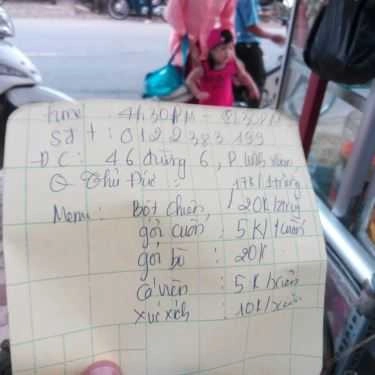 time : 4h30PM - 8h30PM
Sđt : 0122 383 199
ĐC : 46 đường 6, P. Linh Xuân,
Q Thủ Đức
17K/1 trứng
Menu : Bột chiên, 20K/2 trứng
gỏi cuốn : 5K/1 cuốn
gỏi bò : 20K
Cá viên : 5K/xiên
Xúc xích : 10K/xiên